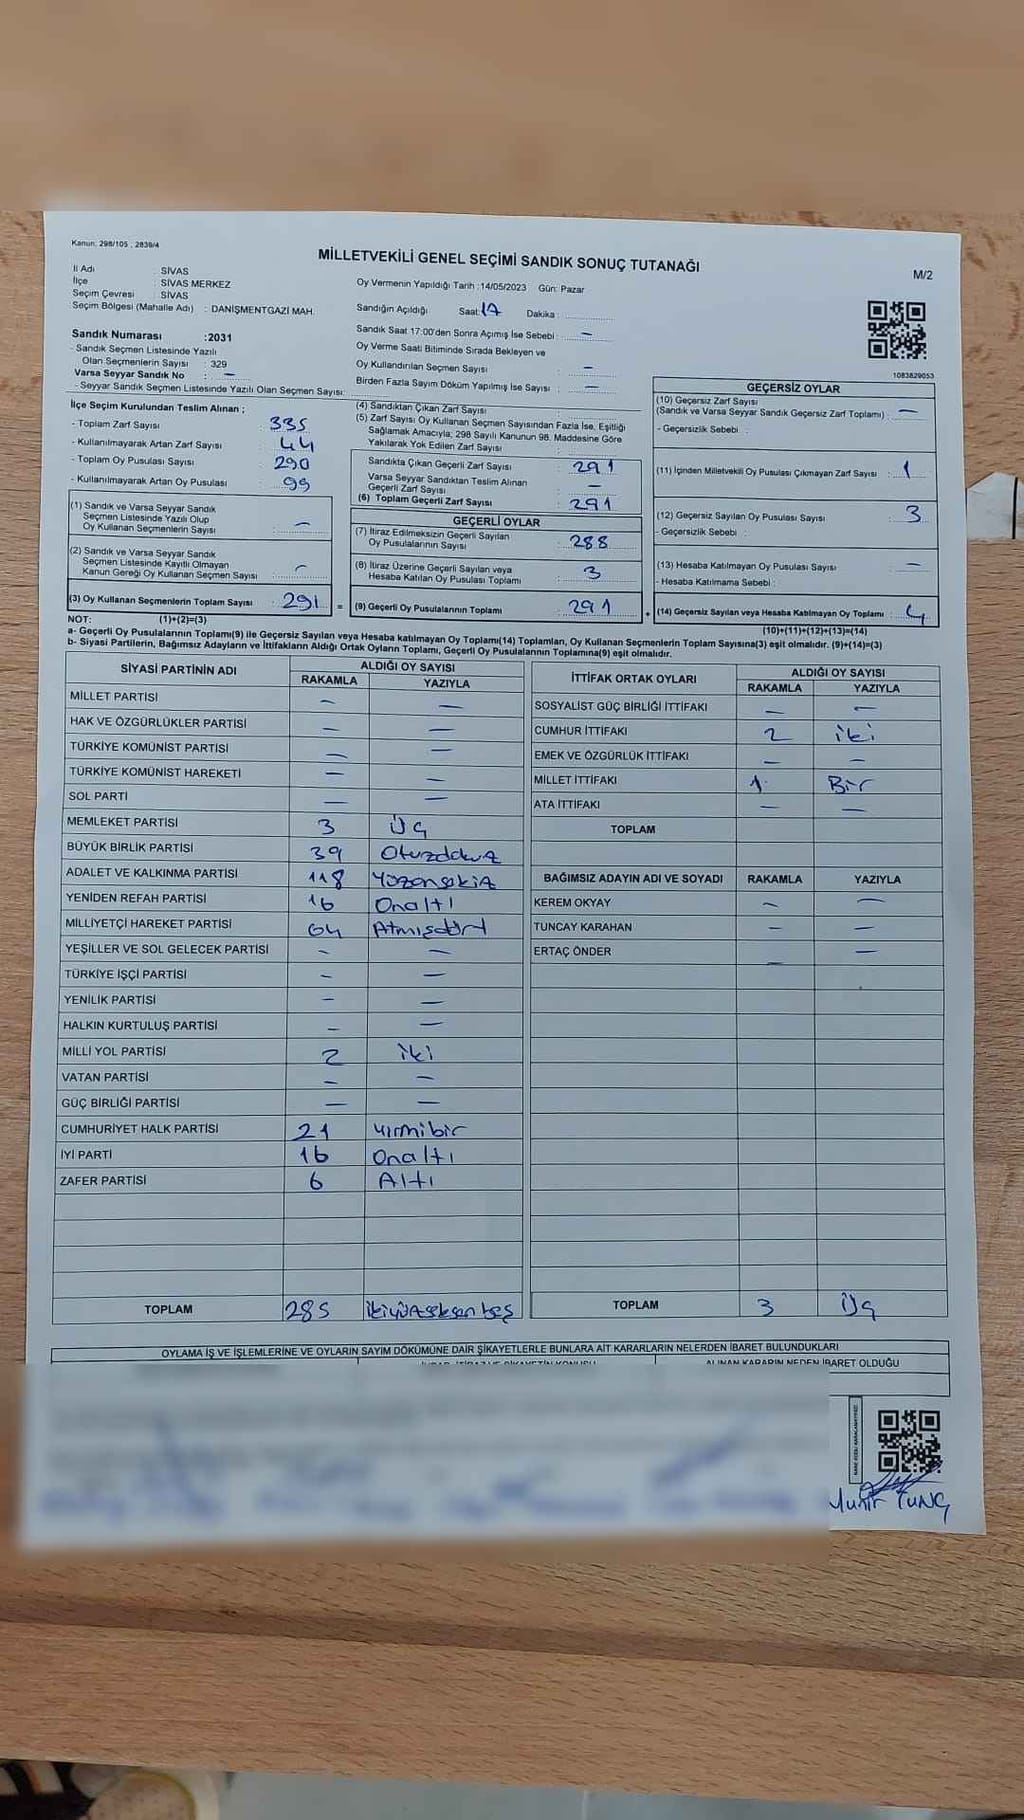 Kanun: 298/105 , 2839/4
MİLLETVEKİLİ GENEL SEÇİMİ SANDIK SONUÇ TUTANAĞI
M/2
İl Adı : SİVAS
İlçe : SİVAS MERKEZ
Seçim Çevresi : SİVAS
Seçim Bölgesi (Mahalle Adı) : DANİŞMENTGAZİ MAH.
Oy Vermenin Yapıldığı Tarih :14/05/2023 Gün: Pazar
Sandığın Açıldığı Saat: 17 Dakika :
Sandık Saat 17:00'den Sonra Açımış İse Sebebi : —
Oy Verme Saati Bitiminde Sırada Bekleyen ve
Oy Kullandırılan Seçmen Sayısı : —
Birden Fazla Sayım Döküm Yapılmış İse Sayısı : —
1083829053
Sandık Numarası :2031
- Sandık Seçmen Listesinde Yazılı
Olan Seçmenlerin Sayısı : 329
Varsa Seyyar Sandık No : —
- Seyyar Sandık Seçmen Listesinde Yazılı Olan Seçmen Sayısı:
İlçe Seçim Kurulundan Teslim Alınan ;
- Toplam Zarf Sayısı : 335
- Kullanılmayarak Artan Zarf Sayısı : 44
- Toplam Oy Pusulası Sayısı : 290
- Kullanılmayarak Artan Oy Pusulası : 99
(1) Sandık ve Varsa Seyyar Sandık
Seçmen Listesinde Yazılı Olup
Oy Kullanan Seçmenlerin Sayısı : —
(2) Sandık ve Varsa Seyyar Sandık
Seçmen Listesinde Kayıtlı Olmayan
Kanun Gereği Oy Kullanan Seçmen Sayısı : —
(3) Oy Kullanan Seçmenlerin Toplam Sayısı : 291 =
(4) Sandıktan Çıkan Zarf Sayısı
(5) Zarf Sayısı Oy Kullanan Seçmen Sayısından Fazla İse, Eşitliği
Sağlamak Amacıyla; 298 Sayılı Kanunun 98. Maddesine Göre
Yakılarak Yok Edilen Zarf Sayısı
Sandıkta Çıkan Geçerli Zarf Sayısı : 291
Varsa Seyyar Sandıktan Teslim Alınan
Geçerli Zarf Sayısı : —
(6) Toplam Geçerli Zarf Sayısı : 291
GEÇERLİ OYLAR
(7) İtiraz Edilmeksizin Geçerli Sayılan
Oy Pusulalarının Sayısı : 288
(8) İtiraz Üzerine Geçerli Sayılan veya
Hesaba Katılan Oy Pusulası Toplamı : 3
(9) Geçerli Oy Pusulalarının Toplamı : 291 +
GEÇERSİZ OYLAR
(10) Geçersiz Zarf Sayısı
(Sandık ve Varsa Seyyar Sandık Geçersiz Zarf Toplamı) : —
- Geçersizlik Sebebi :
(11) İçinden Milletvekili Oy Pusulası Çıkmayan Zarf Sayısı : 1
(12) Geçersiz Sayılan Oy Pusulası Sayısı : 3
- Geçersizlik Sebebi :
(13) Hesaba Katılmayan Oy Pusulası Sayısı : —
- Hesaba Katılmama Sebebi :
(14) Geçersiz Sayılan veya Hesaba Katılmayan Oy Toplamı : 4
NOT: (1)+(2)=(3)
(10)+(11)+(12)+(13)=(14)
a- Geçerli Oy Pusulalarının Toplamı(9) ile Geçersiz Sayılan veya Hesaba katılmayan Oy Toplamı(14) Toplamları, Oy Kullanan Seçmenlerin Toplam Sayısına(3) eşit olmalıdır. (9)+(14)=(3)
b- Siyasi Partilerin, Bağımsız Adayların ve İttifakların Aldığı Ortak Oyların Toplamı, Geçerli Oy Pusulalarının Toplamına(9) eşit olmalıdır.
SİYASİ PARTİNİN ADI ALDIĞI OY SAYISI
RAKAMLA YAZIYLA
MİLLET PARTİSİ — —
HAK VE ÖZGÜRLÜKLER PARTİSİ — —
TÜRKİYE KOMÜNİST PARTİSİ — —
TÜRKİYE KOMÜNİST HAREKETİ — —
SOL PARTİ — —
MEMLEKET PARTİSİ 3 Üç
BÜYÜK BİRLİK PARTİSİ 39 Otuzdokuz
ADALET VE KALKINMA PARTİSİ 118 Yüzonsekiz
YENİDEN REFAH PARTİSİ 16 Onaltı
MİLLİYETÇİ HAREKET PARTİSİ 64 Atmışdört
YEŞİLLER VE SOL GELECEK PARTİSİ — —
TÜRKİYE İŞÇİ PARTİSİ — —
YENİLİK PARTİSİ — —
HALKIN KURTULUŞ PARTİSİ — —
MİLLİ YOL PARTİSİ 2 iki
VATAN PARTİSİ — —
GÜÇ BİRLİĞİ PARTİSİ — —
CUMHURİYET HALK PARTİSİ 21 Yırmibir
İYİ PARTİ 16 Onaltı
ZAFER PARTİSİ 6 Altı
TOPLAM 285 ikiyüzseksenbeş
İTTİFAK ORTAK OYLARI ALDIĞI OY SAYISI
RAKAMLA YAZIYLA
SOSYALİST GÜÇ BİRLİĞİ İTTİFAKI — —
CUMHUR İTTİFAKI 2 iki
EMEK VE ÖZGÜRLÜK İTTİFAKI — —
MİLLET İTTİFAKI 1 Bir
ATA İTTİFAKI — —
TOPLAM
BAĞIMSIZ ADAYIN ADI VE SOYADI RAKAMLA YAZIYLA
KEREM OKYAY — —
TUNCAY KARAHAN — —
ERTAÇ ÖNDER — —
TOPLAM 3 Üç
OYLAMA İŞ VE İŞLEMLERİNE VE OYLARIN SAYIM DÖKÜMÜNE DAİR ŞİKAYETLERLE BUNLARA AİT KARARLARIN NELERDEN İBARET BULUNDUKLARI
ALINAN KARARIN NEDEN İBARET OLDUĞU
Munir TUNÇ